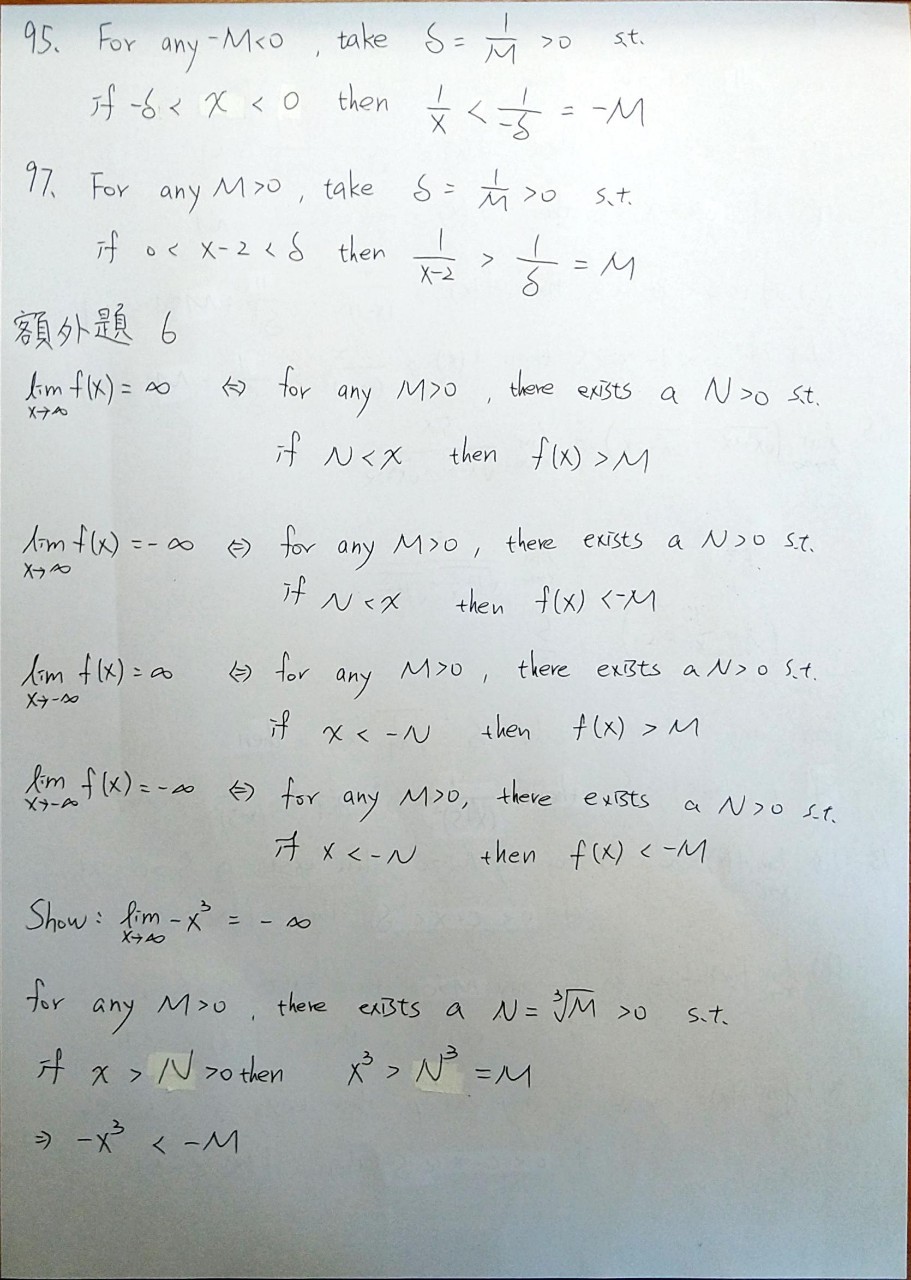 95. For any -M<0, take δ = 1/M >0 s.t.
if -δ < x < 0 then 1/x < 1/-δ = -M
97. For any M>0, take δ = 1/M >0 s.t.
if 0< x-2 < δ then 1/(x-2) > 1/δ = M
額外題 6
lim x→∞ f(x) = ∞ ⇔ for any M>0, there exists a N>0 s.t.
if N<x then f(x) >M
lim x→∞ f(x) = -∞ ⇔ for any M>0, there exists a N>0 s.t.
if N<x then f(x) <-M
lim x→-∞ f(x) = ∞ ⇔ for any M>0, there exists a N>0 s.t.
if x < -N then f(x) > M
lim x→-∞ f(x) = -∞ ⇔ for any M>0, there exists a N>0 s.t.
if x < -N then f(x) < -M
Show: lim x→∞ -x³ = -∞
for any M>0, there exists a N = ∛M >0 s.t.
if x > N >0 then x³ > N³ = M
⇒ -x³ < -M